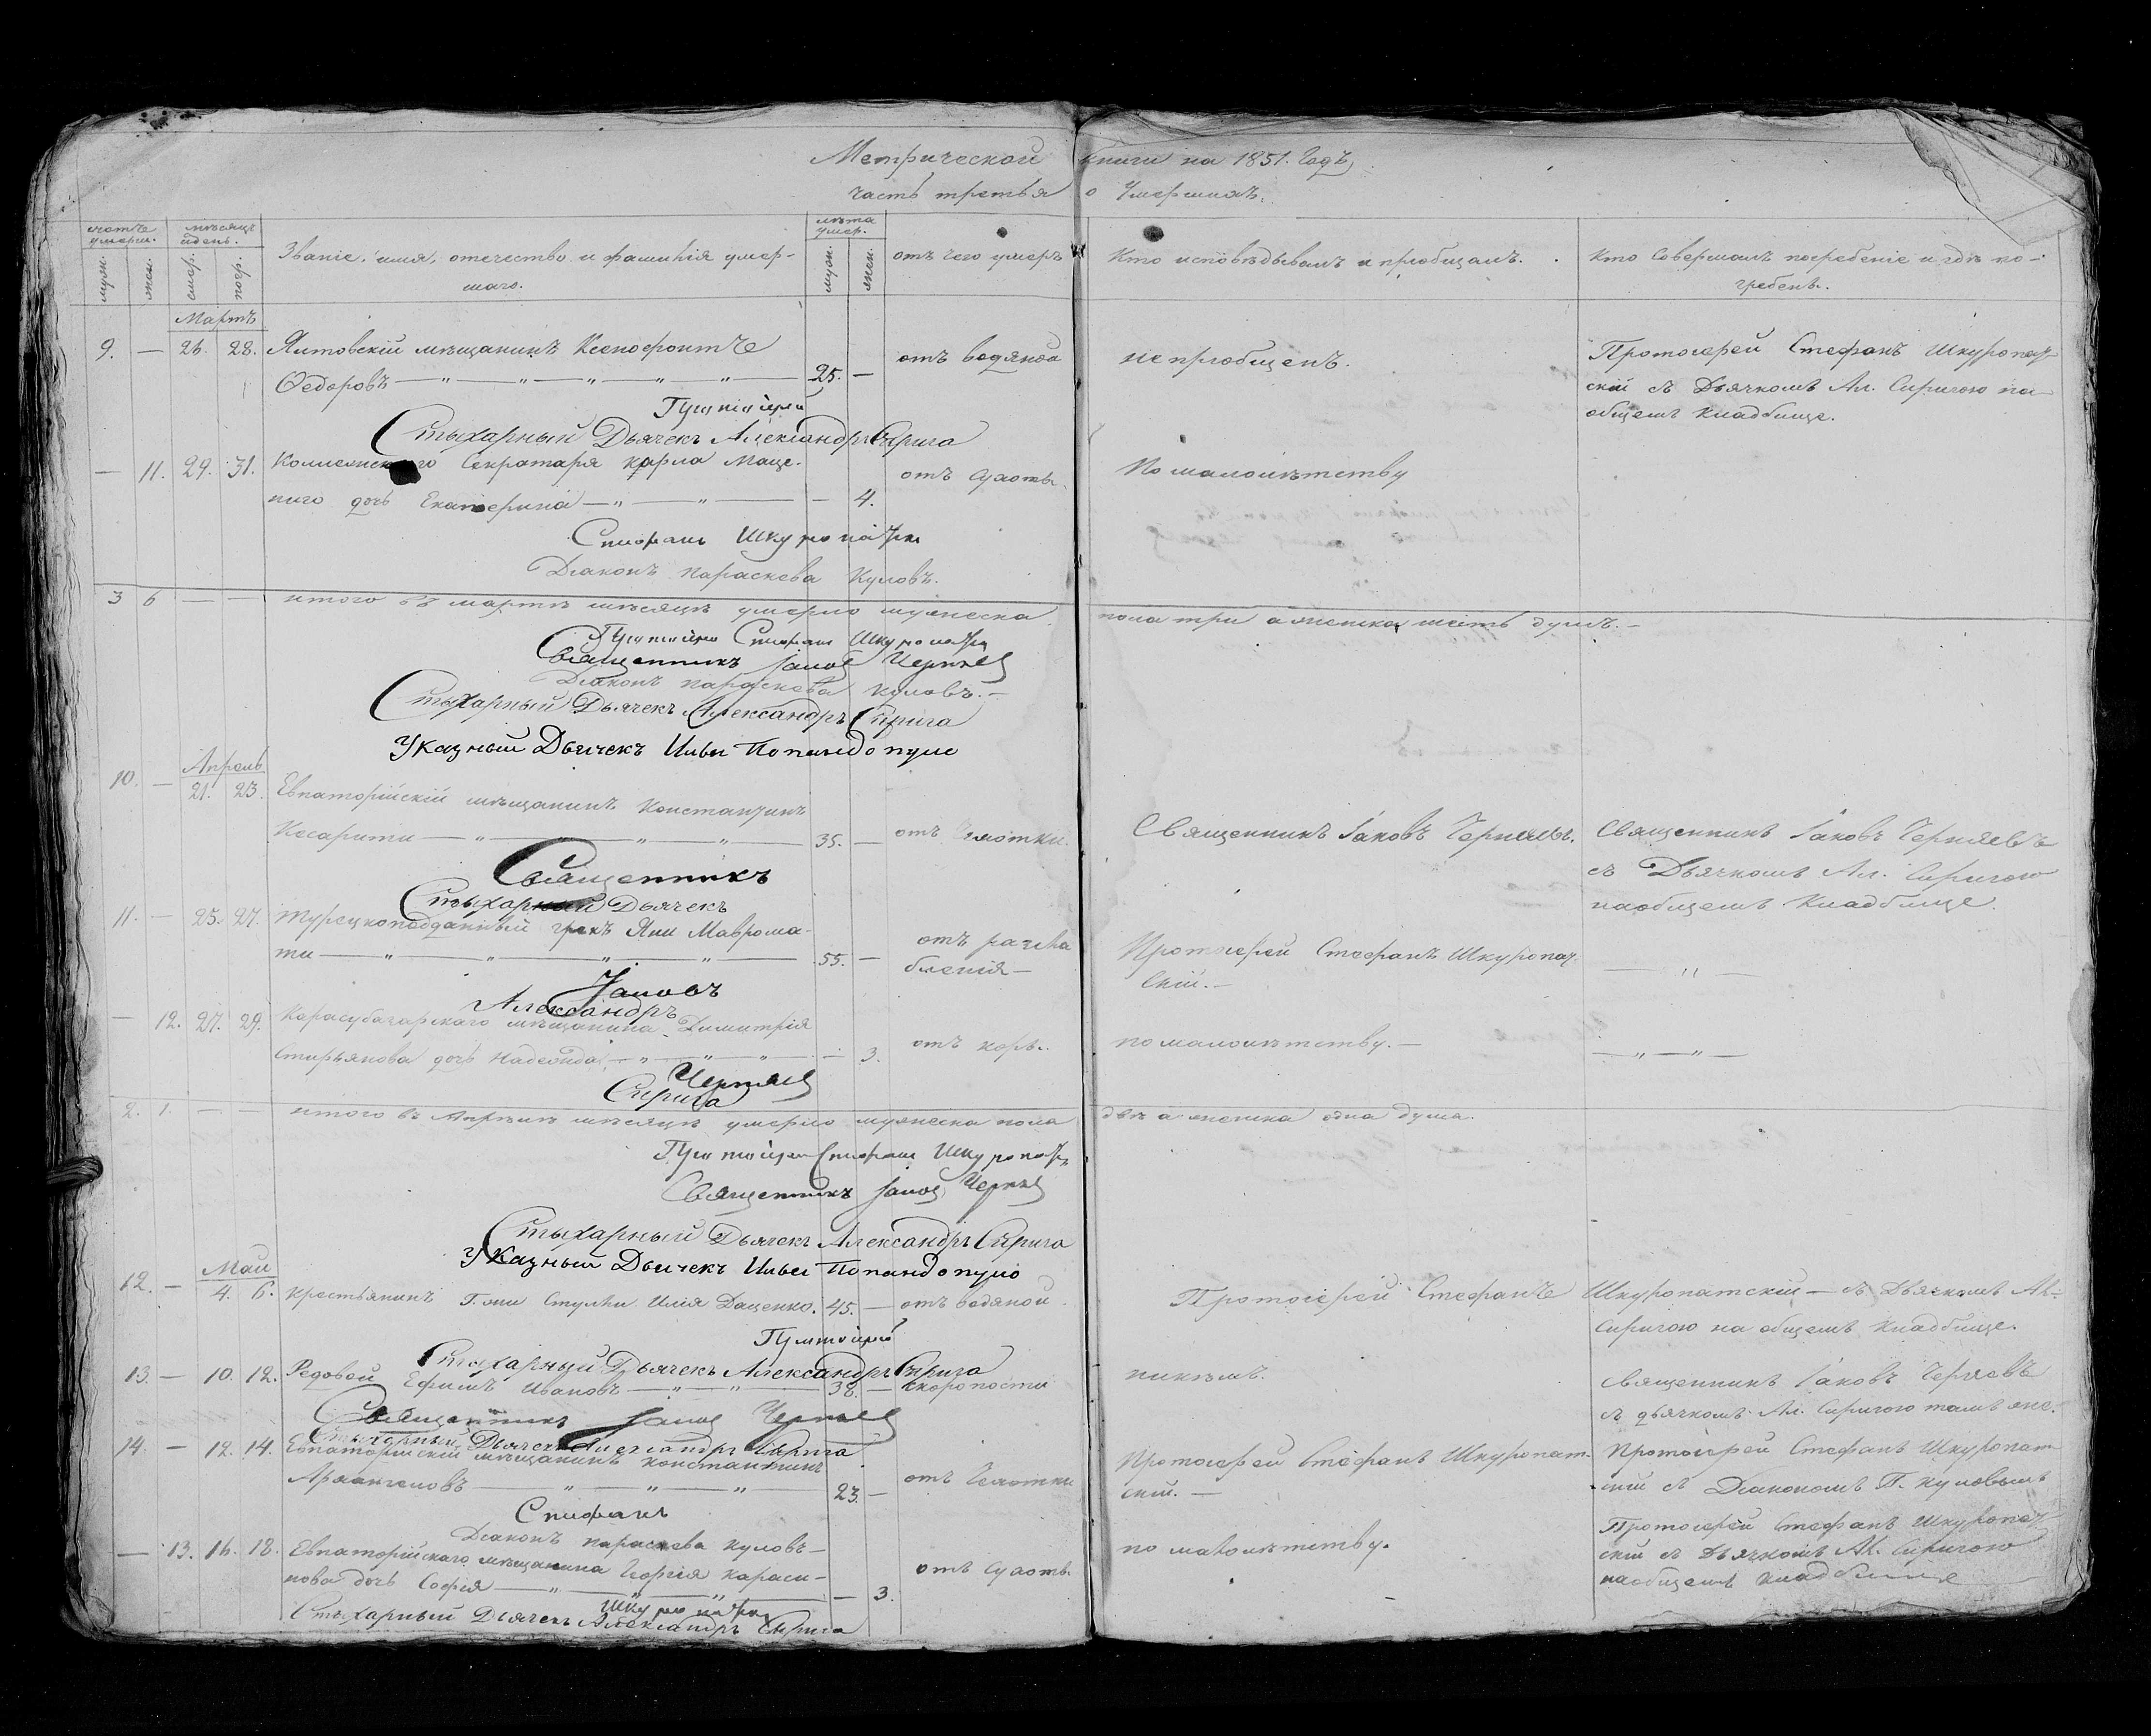 Метрической книги на 1851. Годъ,
часть третья о Умершихъ.
счетъ умерш.
мѣсяцъ и день.
лѣта умер.
муж.
жен.
смер.
погр.
Званіе, имя, отечество и фамилія умер-
шаго.
муж.
жен.
отъ чего умеръ
Кто исповѣдывалъ и пріобщалъ.
Кто Совершалъ погребеніе и гдѣ по-
гребенъ.
Мартъ
9. — 26. 28. Ялтовскій мѣщанинъ Ксенофонтъ
Ѳедоровъ — " — " — " — " — " — 25. — отъ водяной
не пріобщенъ.
Протоіерей Стефанъ Шкуропат-
скій съ Дьячкомъ Ал. Сиригою на
общемъ Кладбище.
Протоіерей
Стыхарный Дьячекъ Александръ Сирига
— 11. 29. 31. Коллежскаго Секратаря Карла Маце-
ного дочь Екатерина — " — " — — 4. отъ сухоты.
По малолѣтству
Стефанъ Шкуропатск
Діаконъ Параскева Куловъ.
3 6 — — итого въ мартѣ мѣсяцѣ умерло мужеска
пола три а женска шесть душъ. —
Протоіерей Стефанъ Шкуропатск
Священникъ Іаковъ Черняев
Діаконъ Параскева Куловъ. —
Стыхарный Дьячекъ Александръ Сирига
Указный Дьячекъ Илья Попандопуло
Апрель
10. — 21. 23. Евпаторійскій мѣщанинъ Константинъ
Кесарити — " — " — " — 35. — отъ Чахотки.
Священникъ Іаковъ Черняевъ.
Священникъ Іаковъ Черняевъ
съ Дьячкомъ Ал. Сиригою
на общемъ Кладбище.
Священникъ
Стыхарный Дьячекъ
11. — 25. 27. Турецкоподданный грекъ Яни Маврома-
ти — " — " — " — " — 55. — отъ разсла
бленія —
Протоіерей Стефанъ Шкуропат-
скій. —
— " —
Іаковъ
Александръ
— 12. 27. 29. Карасубазарскаго мѣщанина Димитрія
Стирьянова дочь Надежда, — " — " — " — — 3. отъ корь.
по малолѣтству. —
— " — " —
Черняев
Сирига
2. 1. — итого въ Апрѣлѣ мѣсяцѣ умерло мужеска пола
двѣ а женска одна душа.
Протоіерей Стефанъ Шкуропатск
Священникъ Іаковъ Черняев
Стыхарный Дьячекъ Александръ Сирига
Указный Дьячекъ Илья Попандопуло
Май
12. — 4. 6. крестьянинъ Илія Даценко. 45. — отъ водяной
Протоіерей Стефанъ Шкуропатскій — съ Дьячкомъ Ал-
Сиригою на общемъ Кладбище.
Протоіерей
Стыхарный Дьячекъ Александръ Сирига
13. — 10. 12. Редовой Ефимъ Ивановъ — " — " — 38. — скоропости
никѣмъ.
Священникъ Іаковъ Черняевъ
съ дьячкомъ Ал. Сиригою тамъ же.
Священникъ Іаковъ Черняев
Стыхарный Дьячекъ Александръ Сирига
14. — 12. 14. Евпаторійскій мѣщанинъ Константинъ
Архангеловъ — " — " — " — 23. — отъ Чахотки
Протоіерей Стефанъ Шкуропат-
скій. —
Протоіерей Стефанъ Шкуропат-
скій съ Діакономъ П. Куловымъ
Стефанъ
Діаконъ Параскева Куловъ —
— 13. 16. 18. Евпаторійскаго мѣщанина Георгія Караси-
нова дочь Софія — " — " — — 3. отъ сухоты.
по малолѣтству.
Протоіерей Стефанъ Шкуропат-
скій съ Дьячкомъ Ал. Сиригою
на общемъ кладбище
Шкуропатск
Стыхарный Дьячекъ Александръ Сирига